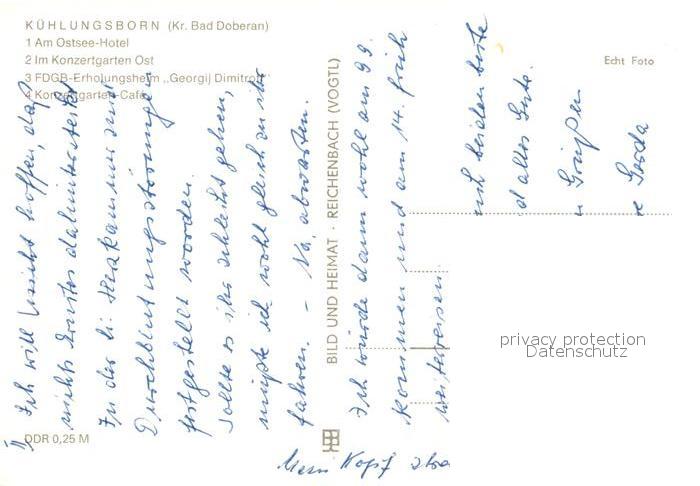 KÜHLUNGSBORN (Kr. Bad Doberan)
1 Am Ostsee-Hotel
2 Im Konzertgarten Ost
3 FDGB-Erholungsheim „Georgij Dimitroff"
4 Konzertgarten-Café
Echt Foto
BILD UND HEIMAT · REICHENBACH (VOGTL)
DDR 0,25 M
1) Ich will nicht hoffen, daß
nichts ernstes dahintersteckt
In der li. Herzkammer sind
Durchblutungsstörungen
festgestellt worden.
Sollte es ihr schlecht gehen,
müßte ich wohl gleich zu ihr
fahren. – Na, abwarten.
Ich würde dann wohl am 9.9.
kommen und am 14. früh
weiterreisen
beiden
alles Gute.
Grüßen
Gerda
Mein Kopf
privacy protection
Datenschutz